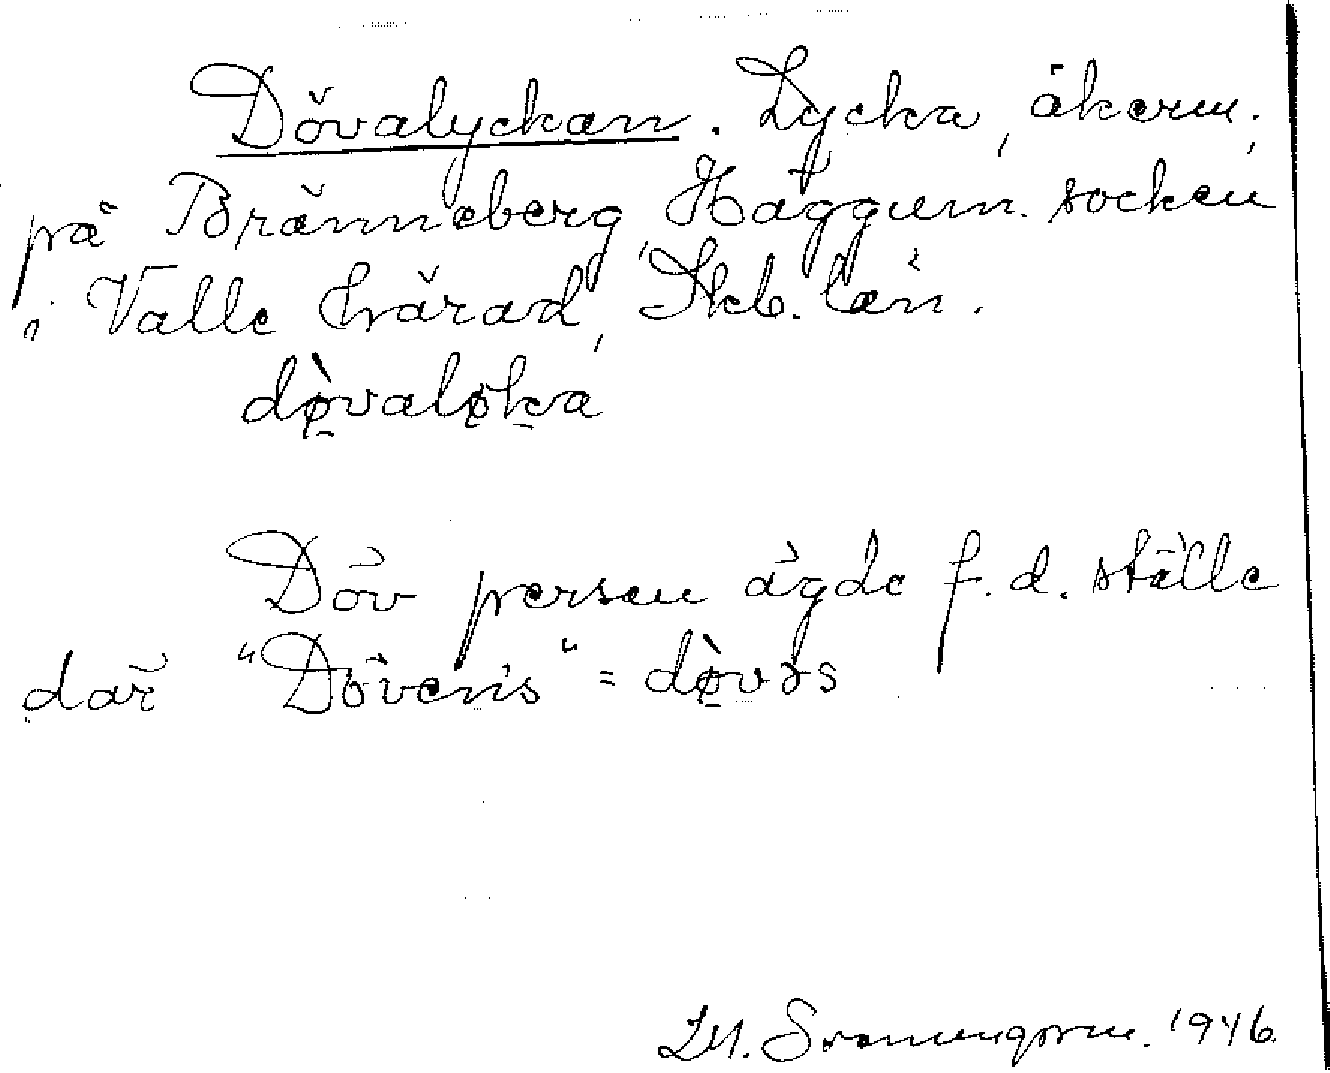 Dövalyckan. Lycka, åkerm.,
på Bränneberg, Häggum socken
i Valle härad, Skb. län.
dø̀valøka
Döv person ägde f.d. ställe
där "Dövens" = dø̀vəs
1946